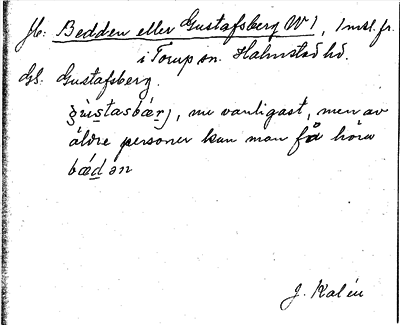 fb: Bedden eller Gustafsberg No 1, 1 mtl. fr.
i Torup sn. Halmstad hd.
Gl. Gustafsberg.
gùstasbærj, nu vanligast, men av
äldre personer kan man få höra
bædən
J. Kalén